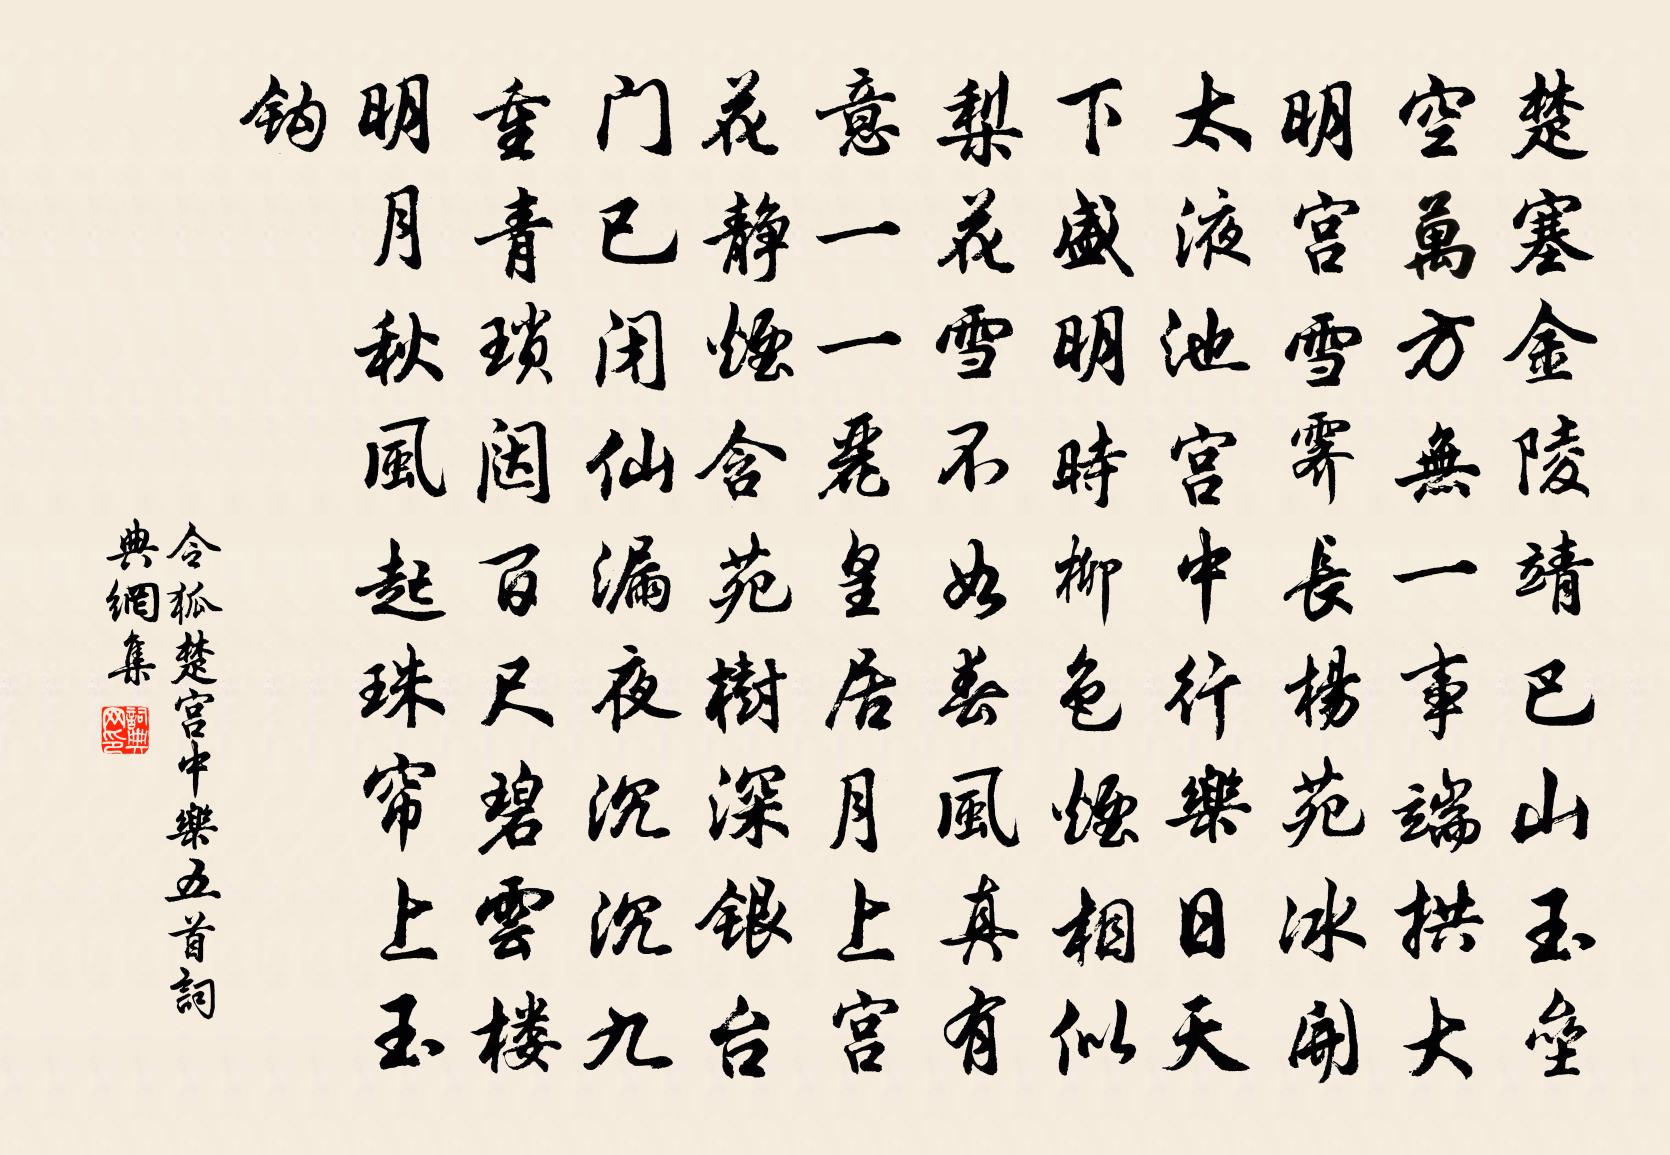 楚塞金陵靖巴山玉壘
空萬方無一事端拱大
明宮雪霽長楊苑冰開
太液池宮中行樂日天
下盛明時柳色煙相似
梨花雪不如春風真有
意一一麗皇居月上宮
花靜煙含苑樹深銀台
门已闭仙漏夜沉沉九
重青瑣闼百尺碧雲楼
明月秋風起珠帘上玉
鈎
令狐楚宮中樂五首詞
典網集
詞典网印